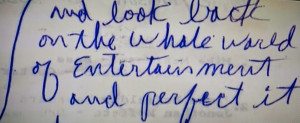 and look back
on the whole world
of Entertainment
and perfect it